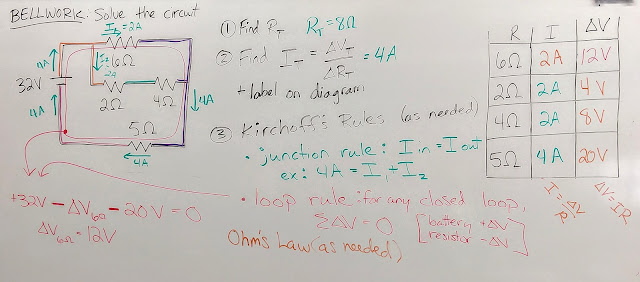 BELLWORK: Solve the circuit
I₂=2A
6Ω
4A
2A
32V
2Ω
4Ω
4A
4A
5Ω
4A
① Find R_T R_T = 8Ω
② Find I_T = ΔV_T / ΔR_T = 4A
+ label on diagram
③ Kirchoff's Rules (as needed)
• junction rule: I in = I out
ex: 4A = I₁ + I₂
• loop rule: for any closed loop,
ΣΔV = 0 [battery +ΔV
resistor -ΔV]
Ohm's Law (as needed)
+32V - ΔV₆Ω - 20V = 0
ΔV₆Ω = 12V
R I ΔV
6Ω 2A 12V
2Ω 2A 4V
4Ω 2A 8V
5Ω 4A 20V
I = ΔV/R ΔV = IR